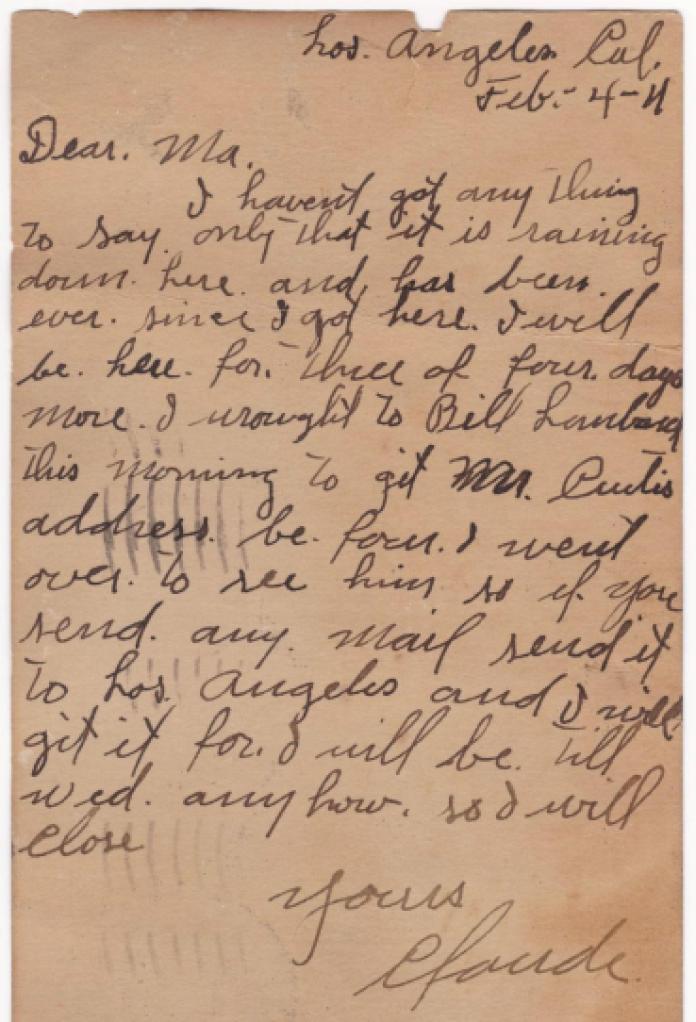 Los. Angeles. Cal.
Feb. - 4 - 11
Dear. Ma.
I havent got any thing
to say only that it is raining
down. here. and, has been.
ever. since I got here. I will
be. here. for. three of four. days
more. I wrought to Bill
this morning to git Mr. Curtis
address. be. four. I went
over. to see him so if you
send. any. mail send it
to Los. Angeles and I will
git it for. I will be. till
wed. any how. so I will
close
yours
Claude.